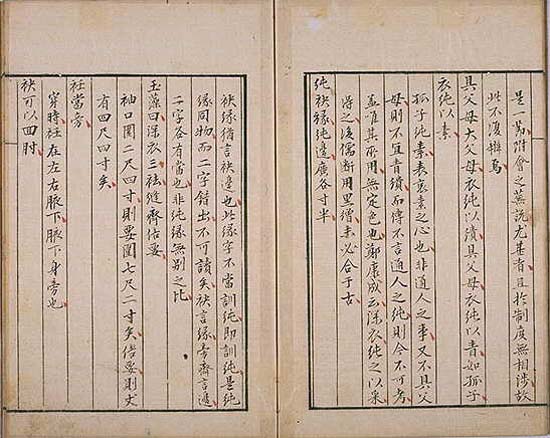 是一附會之蕪說尤甚者且於制度無相涉故
此不復辨焉
具父母大父母衣純以繢具父母衣純以青如孤子
衣純以素
孤子純素表哀素之心也非通人之事又不具父
母則不宜青繢而傳不言通人之純則今不可考
蓋唯其所用無定色也鄭康成云深衣純之以采
之後儒斷用黑繒未必合于古
純袂緣純邊廣各寸半
袂緣猶言袂邊也此緣字不當訓純即訓純是純
緣同物而二字錯出不可讀矣袂言緣旁齊言邊
二字各有當也非純緣無別之比
玉藻曰深衣三袪縫齊倍要
袖口圍二尺四寸則要圍七尺二寸矣倍要則丈
有四尺四寸矣
衽當旁
穿時衽在左右腋下腋下身旁也
袂可以回肘